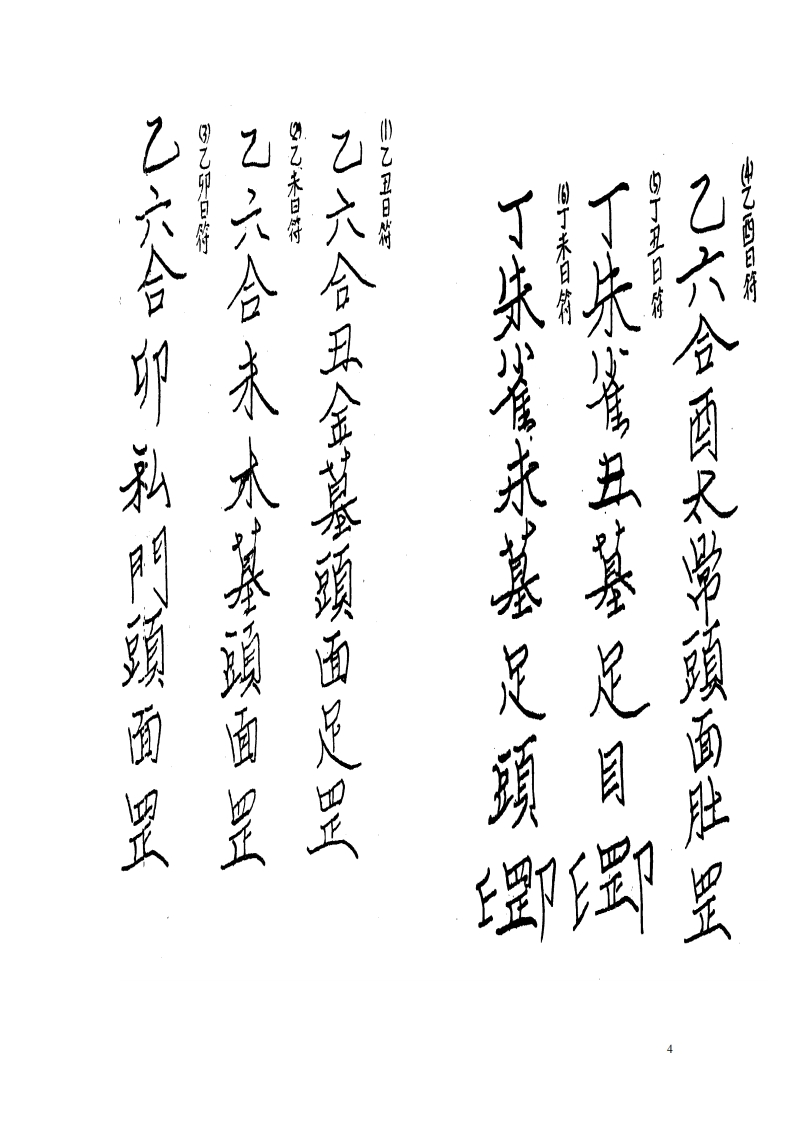 (1)乙丑日符
乙六合丑金墓頭面足罡
(2)乙未日符
乙六合未木墓頭面罡
(3)乙卯日符
乙六合卯私門頭面罡
(4)乙酉日符
乙六合酉太常頭面肚罡
(5)丁丑日符
丁朱雀丑墓足目
(6)丁未日符
丁朱雀未墓足頭
4